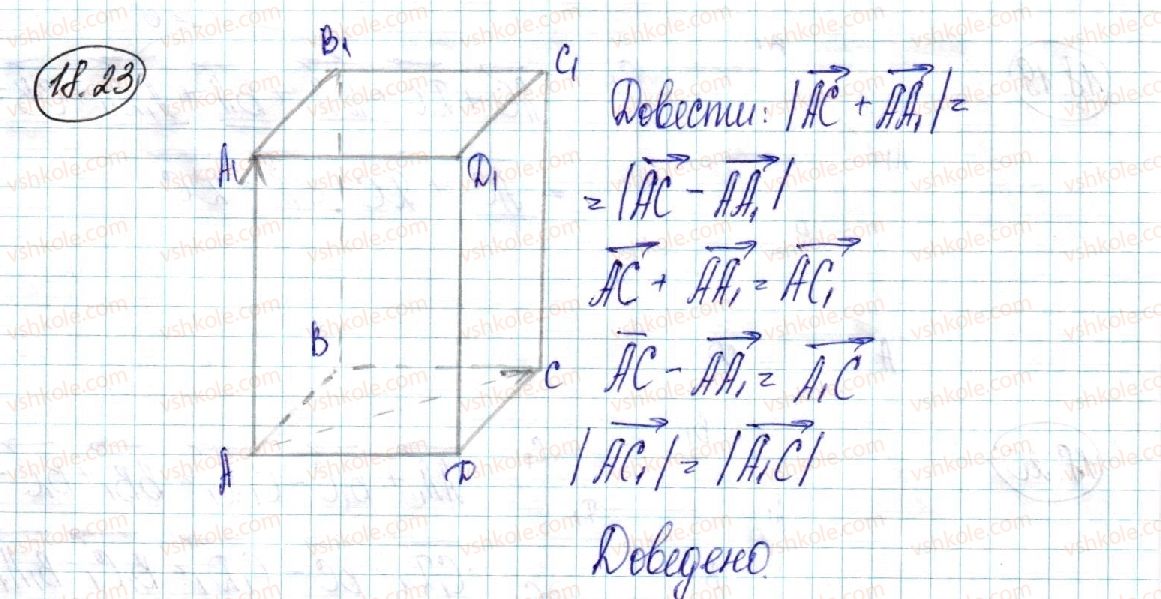 18.23
B₁ C₁
A₁ D₁
B C
A D
Довести: |AC⃗ + AA₁⃗| =
= |AC⃗ - AA₁⃗|
AC⃗ + AA₁⃗ = AC₁⃗
AC̅ - AA₁⃗ = A₁C⃗
|AC₁⃗| = |A₁C⃗|
Доведено
vshkole.com